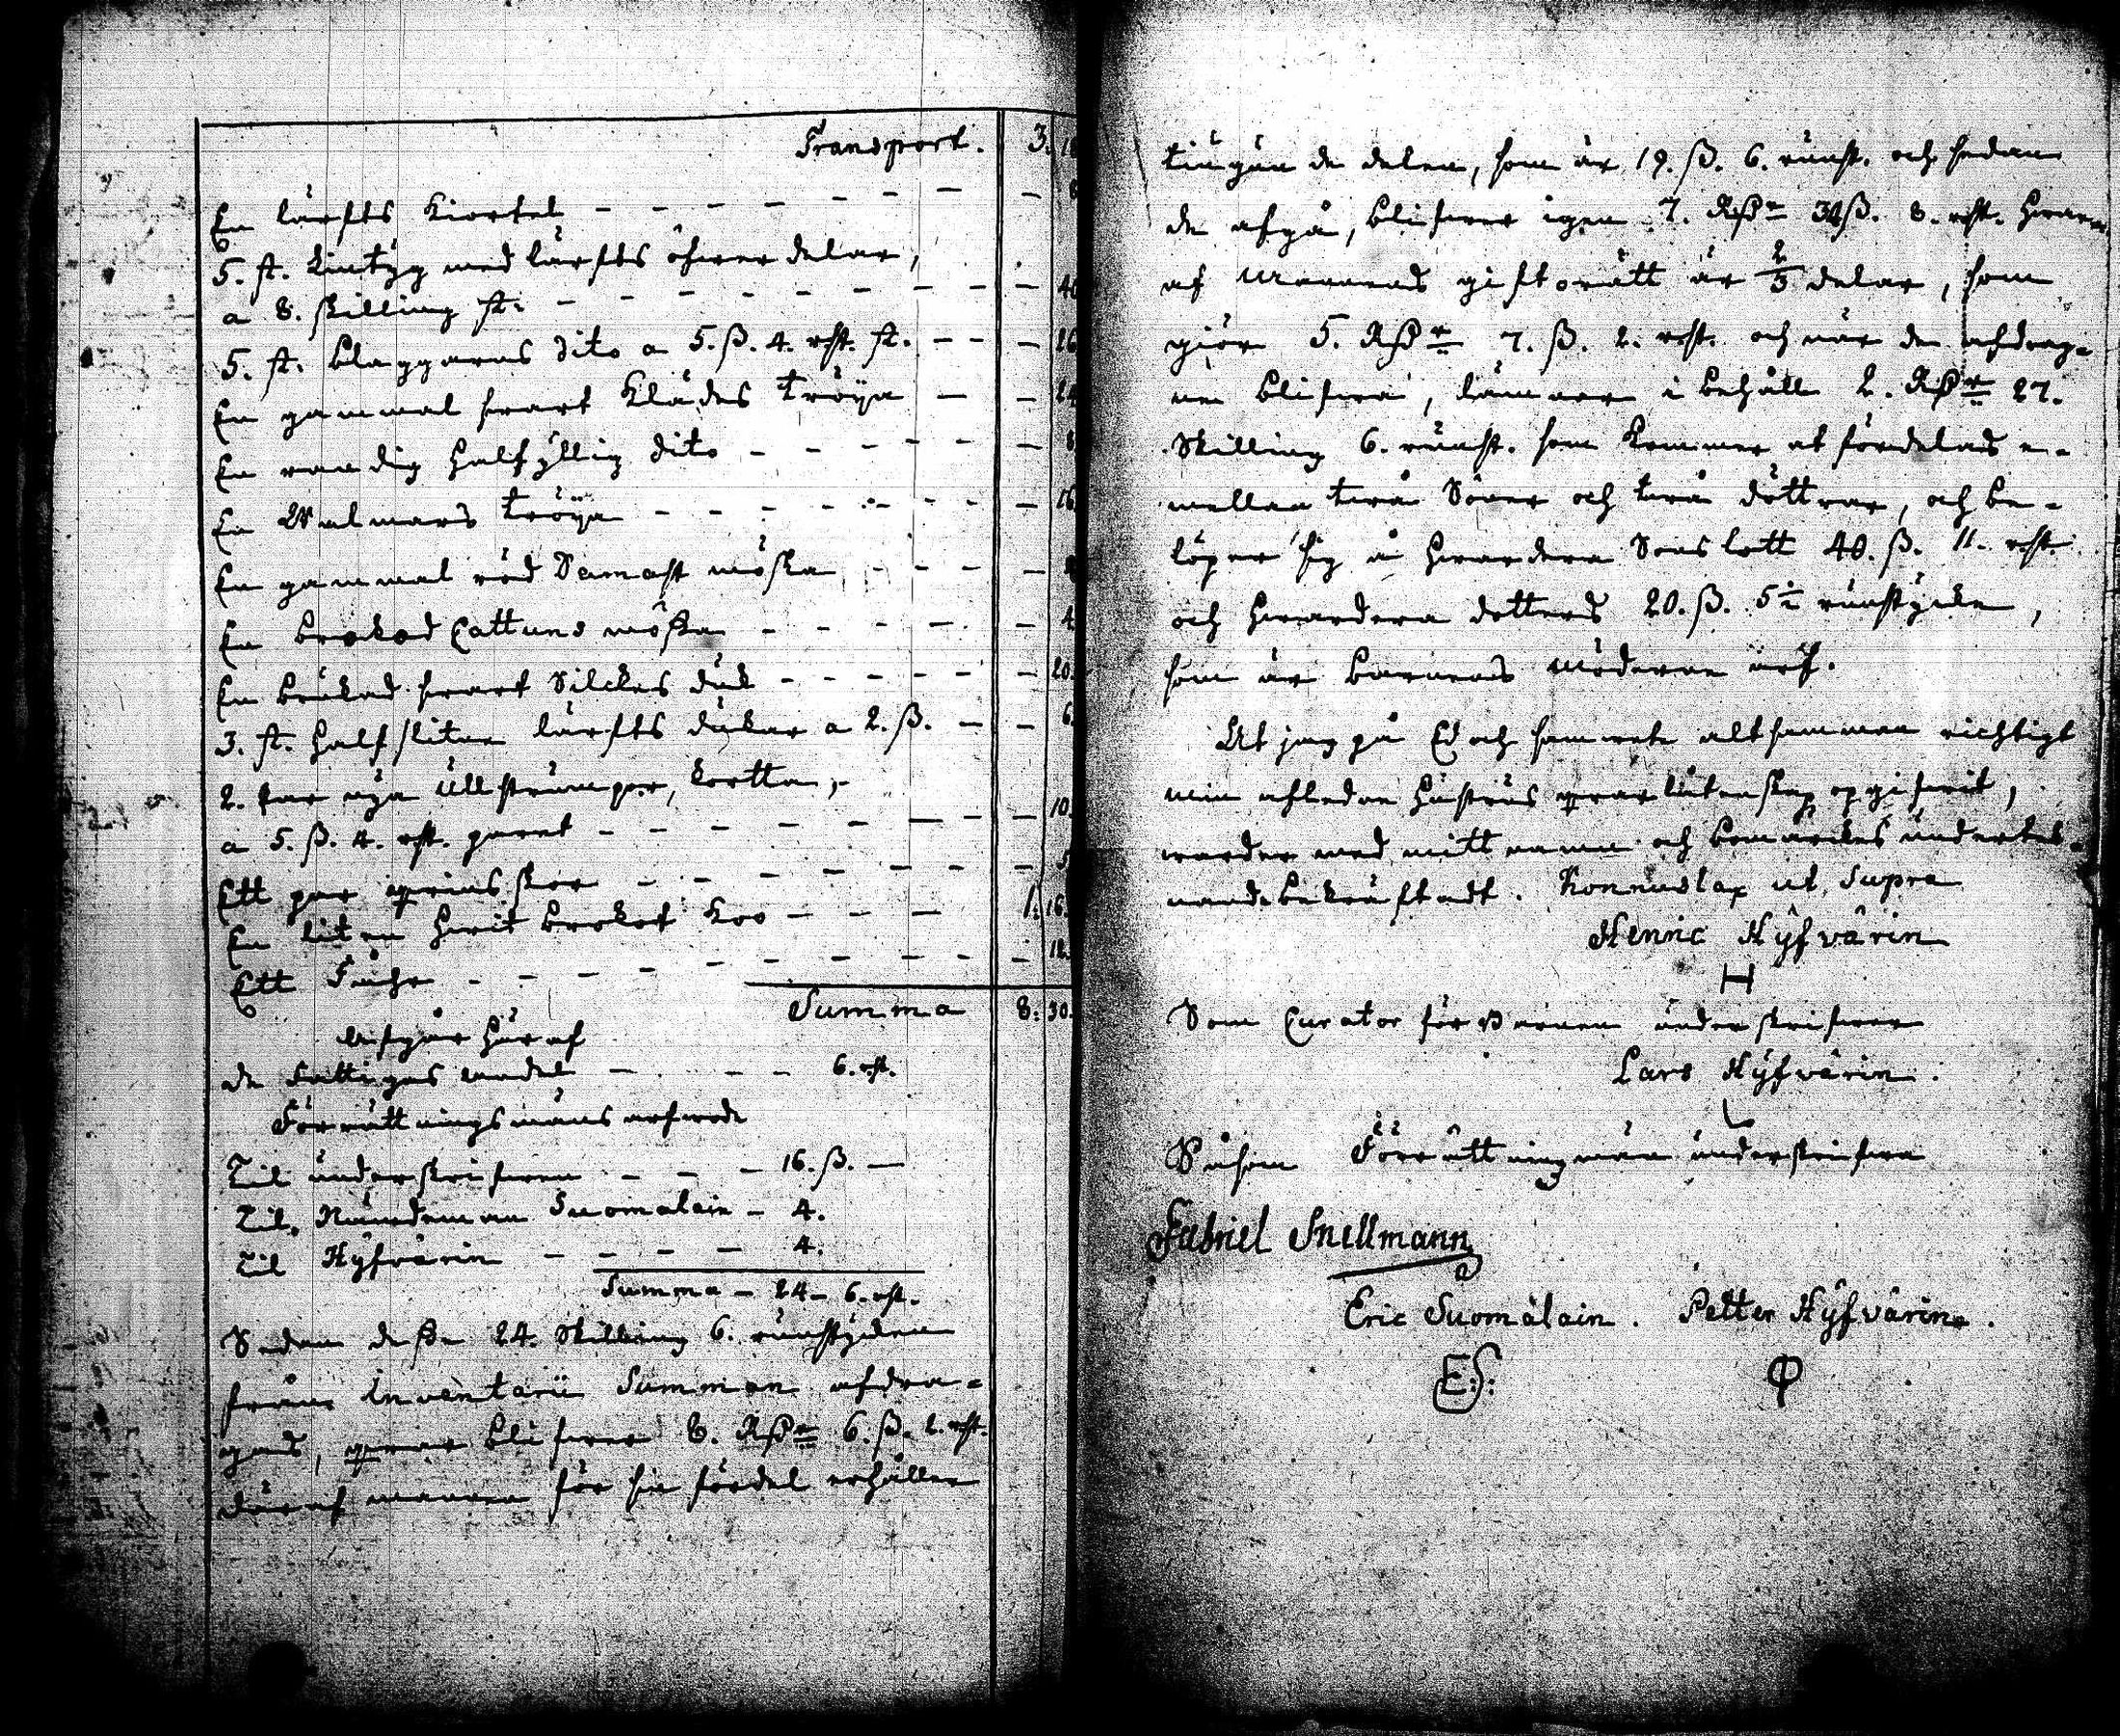 Transport. 3.
En lärfts Kiortel - - - - - - - 8
5. st. lintyg med lärfts öfver delar,
a 8. skilling st. - - - - - - - - 40
5. st. blaggarns dito a 5. ß. 4. rst. st. - - - 26
En gammal svart Klädes tröya - - 24
En randig halfyllig dito - - - - - 8
En Walmars tröya - - - - - - - 16
En gammal röd Damast mössa - - - - 8
En brokod Cattuns mössa - - - - - 4
En brukad svart Silckes duk - - - - - - 20.
3. st. half slitne lärfts dukar a 2. ß. - - 6.
2. par nya Ullstrumpor, kortta,
a 5. ß. 4. rst. paret - - - - - - - 10.
Ett par qvins skor - - - - - - - 5
En liten hvit brokot Koo - - - 1. 16.
Ett Fåhr - - - - - - - - 12.
Summa 8. 30.
Afgår här af
de Fattigas andel - - - - 6. rst.
Förrättningsmäns arfvode
Til underskrifvaren - - - 16. ß. -
Til Nämdeman Suomalain - 4.
Til Hyfvärin - - - - 4.
Summa - 24 - 6. rst.
Sedan desse 24. Skilling 6. runstycken
från Inventarii Summan afdra-
gas, qvar blifver 8. Rßdr 6. ß. 2. rst.
däraf mannen för sin fördel erhåller
tiugunde delen, som är 19. ß. 6. runst. och sedan
de afgå, blifver igen 7. Rßdr 34 ß. 8. rst. hvaraf
af Mannens giftorätt är 2/3 delar, som
giör 5. Rßdr 7. ß. 2. rst. och när de afdrag-
ne blifva, lämnar i behåll 2. Rßdr 27.
Skilling 6. runst. som kommer at fördelas e-
mellan två Söner och två döttrar, och be-
löper sig å hvardera Sons lott 40. ß. 11. rst.
och hvardera dotters 20. ß. 5½ runstycken,
som är barnens möderne arf.
At jag på Ed och samvete altsamman richtigt
min afledne hustrus qvarlåtenskap opgifvit,
warder med mitt namn och bomärkes underteck-
nande bekräftadt. Konnuslax ut Supra
Henric Hyfvärin
H
Som Curator för Barnen underskrifver
Lars Hyfvärin.
L
Såsom Förrättningmän underskrifva
Gabriel Snellmann
Eric Suomalain. Petter Hyfvärin.
ES.